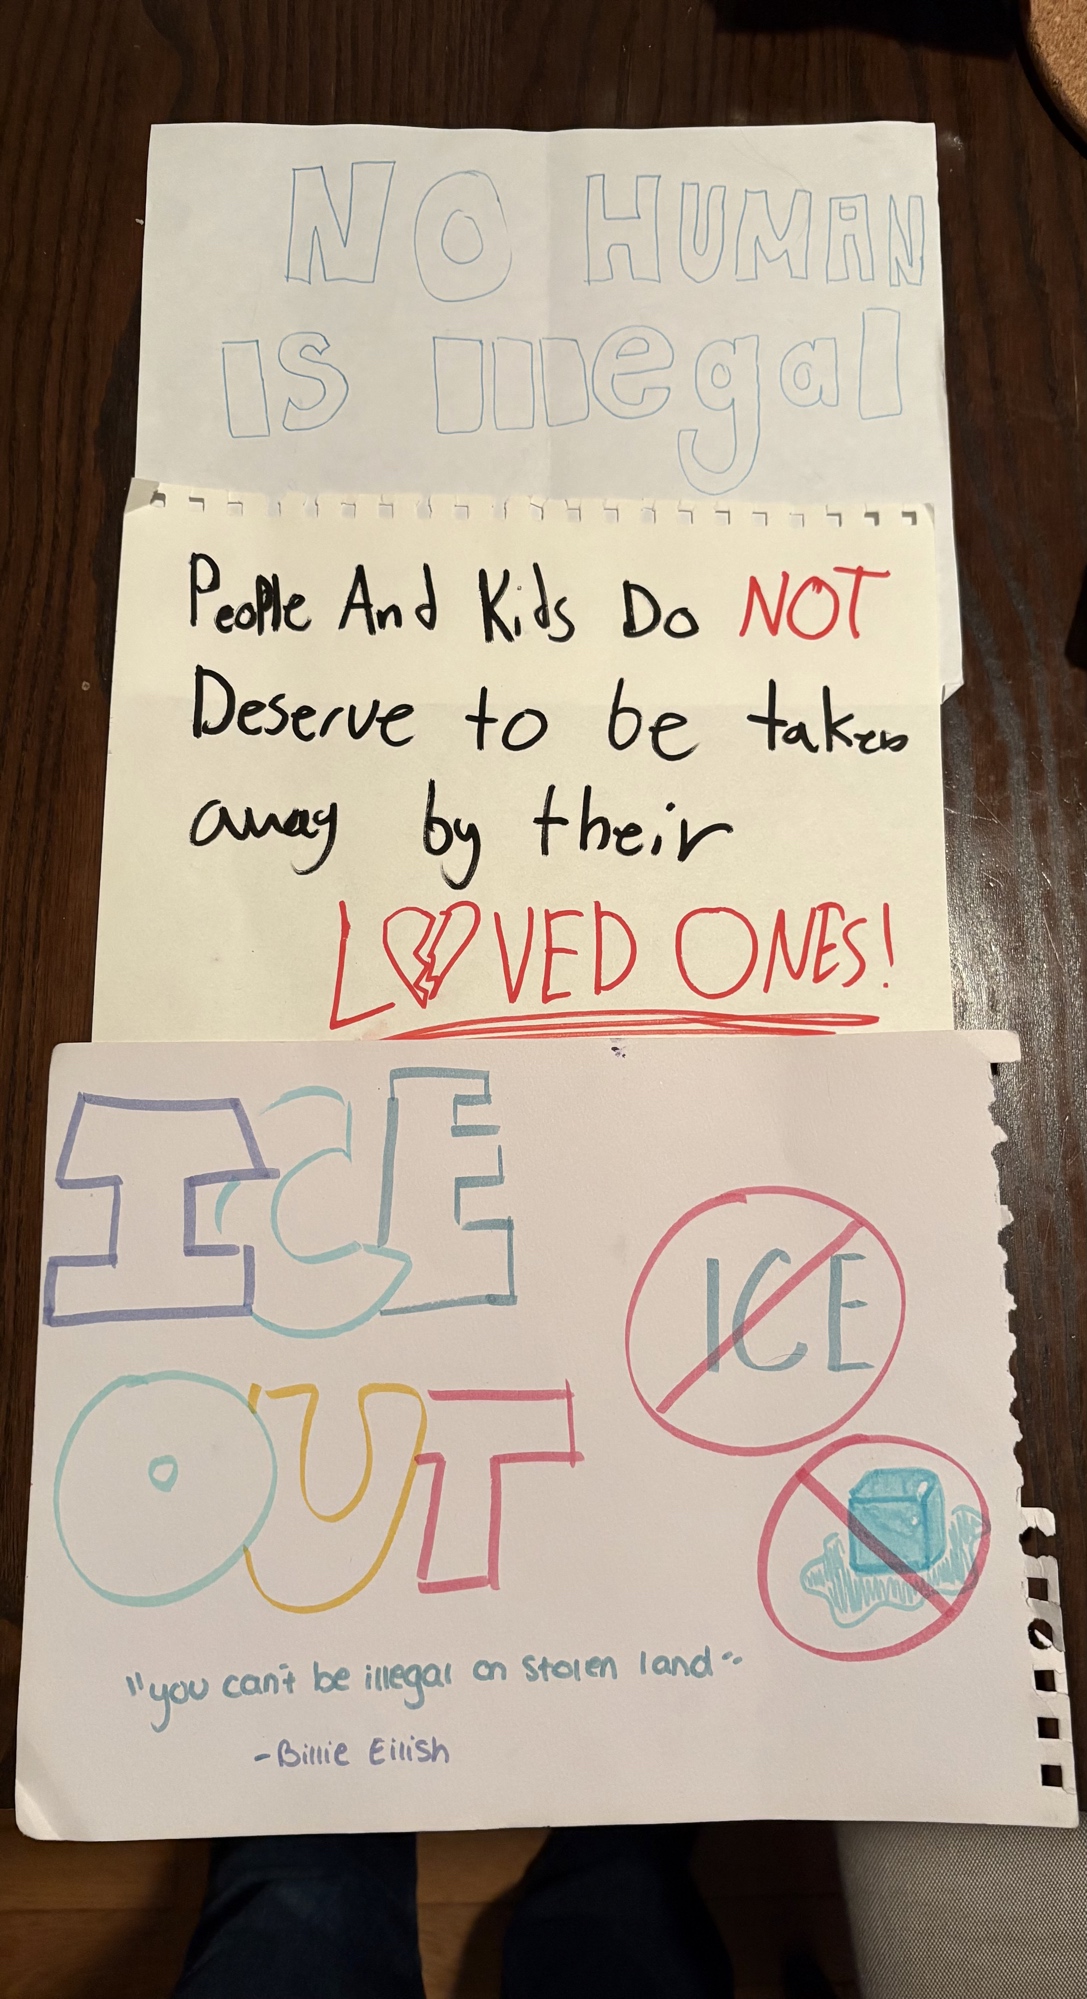 NO HUMAN
is illegal
People And Kids Do NOT
Deserve to be taken
away by their
LOVED ONES!
ICE
OUT
ICE
"you can't be illegal on stolen land"
-Billie Eilish